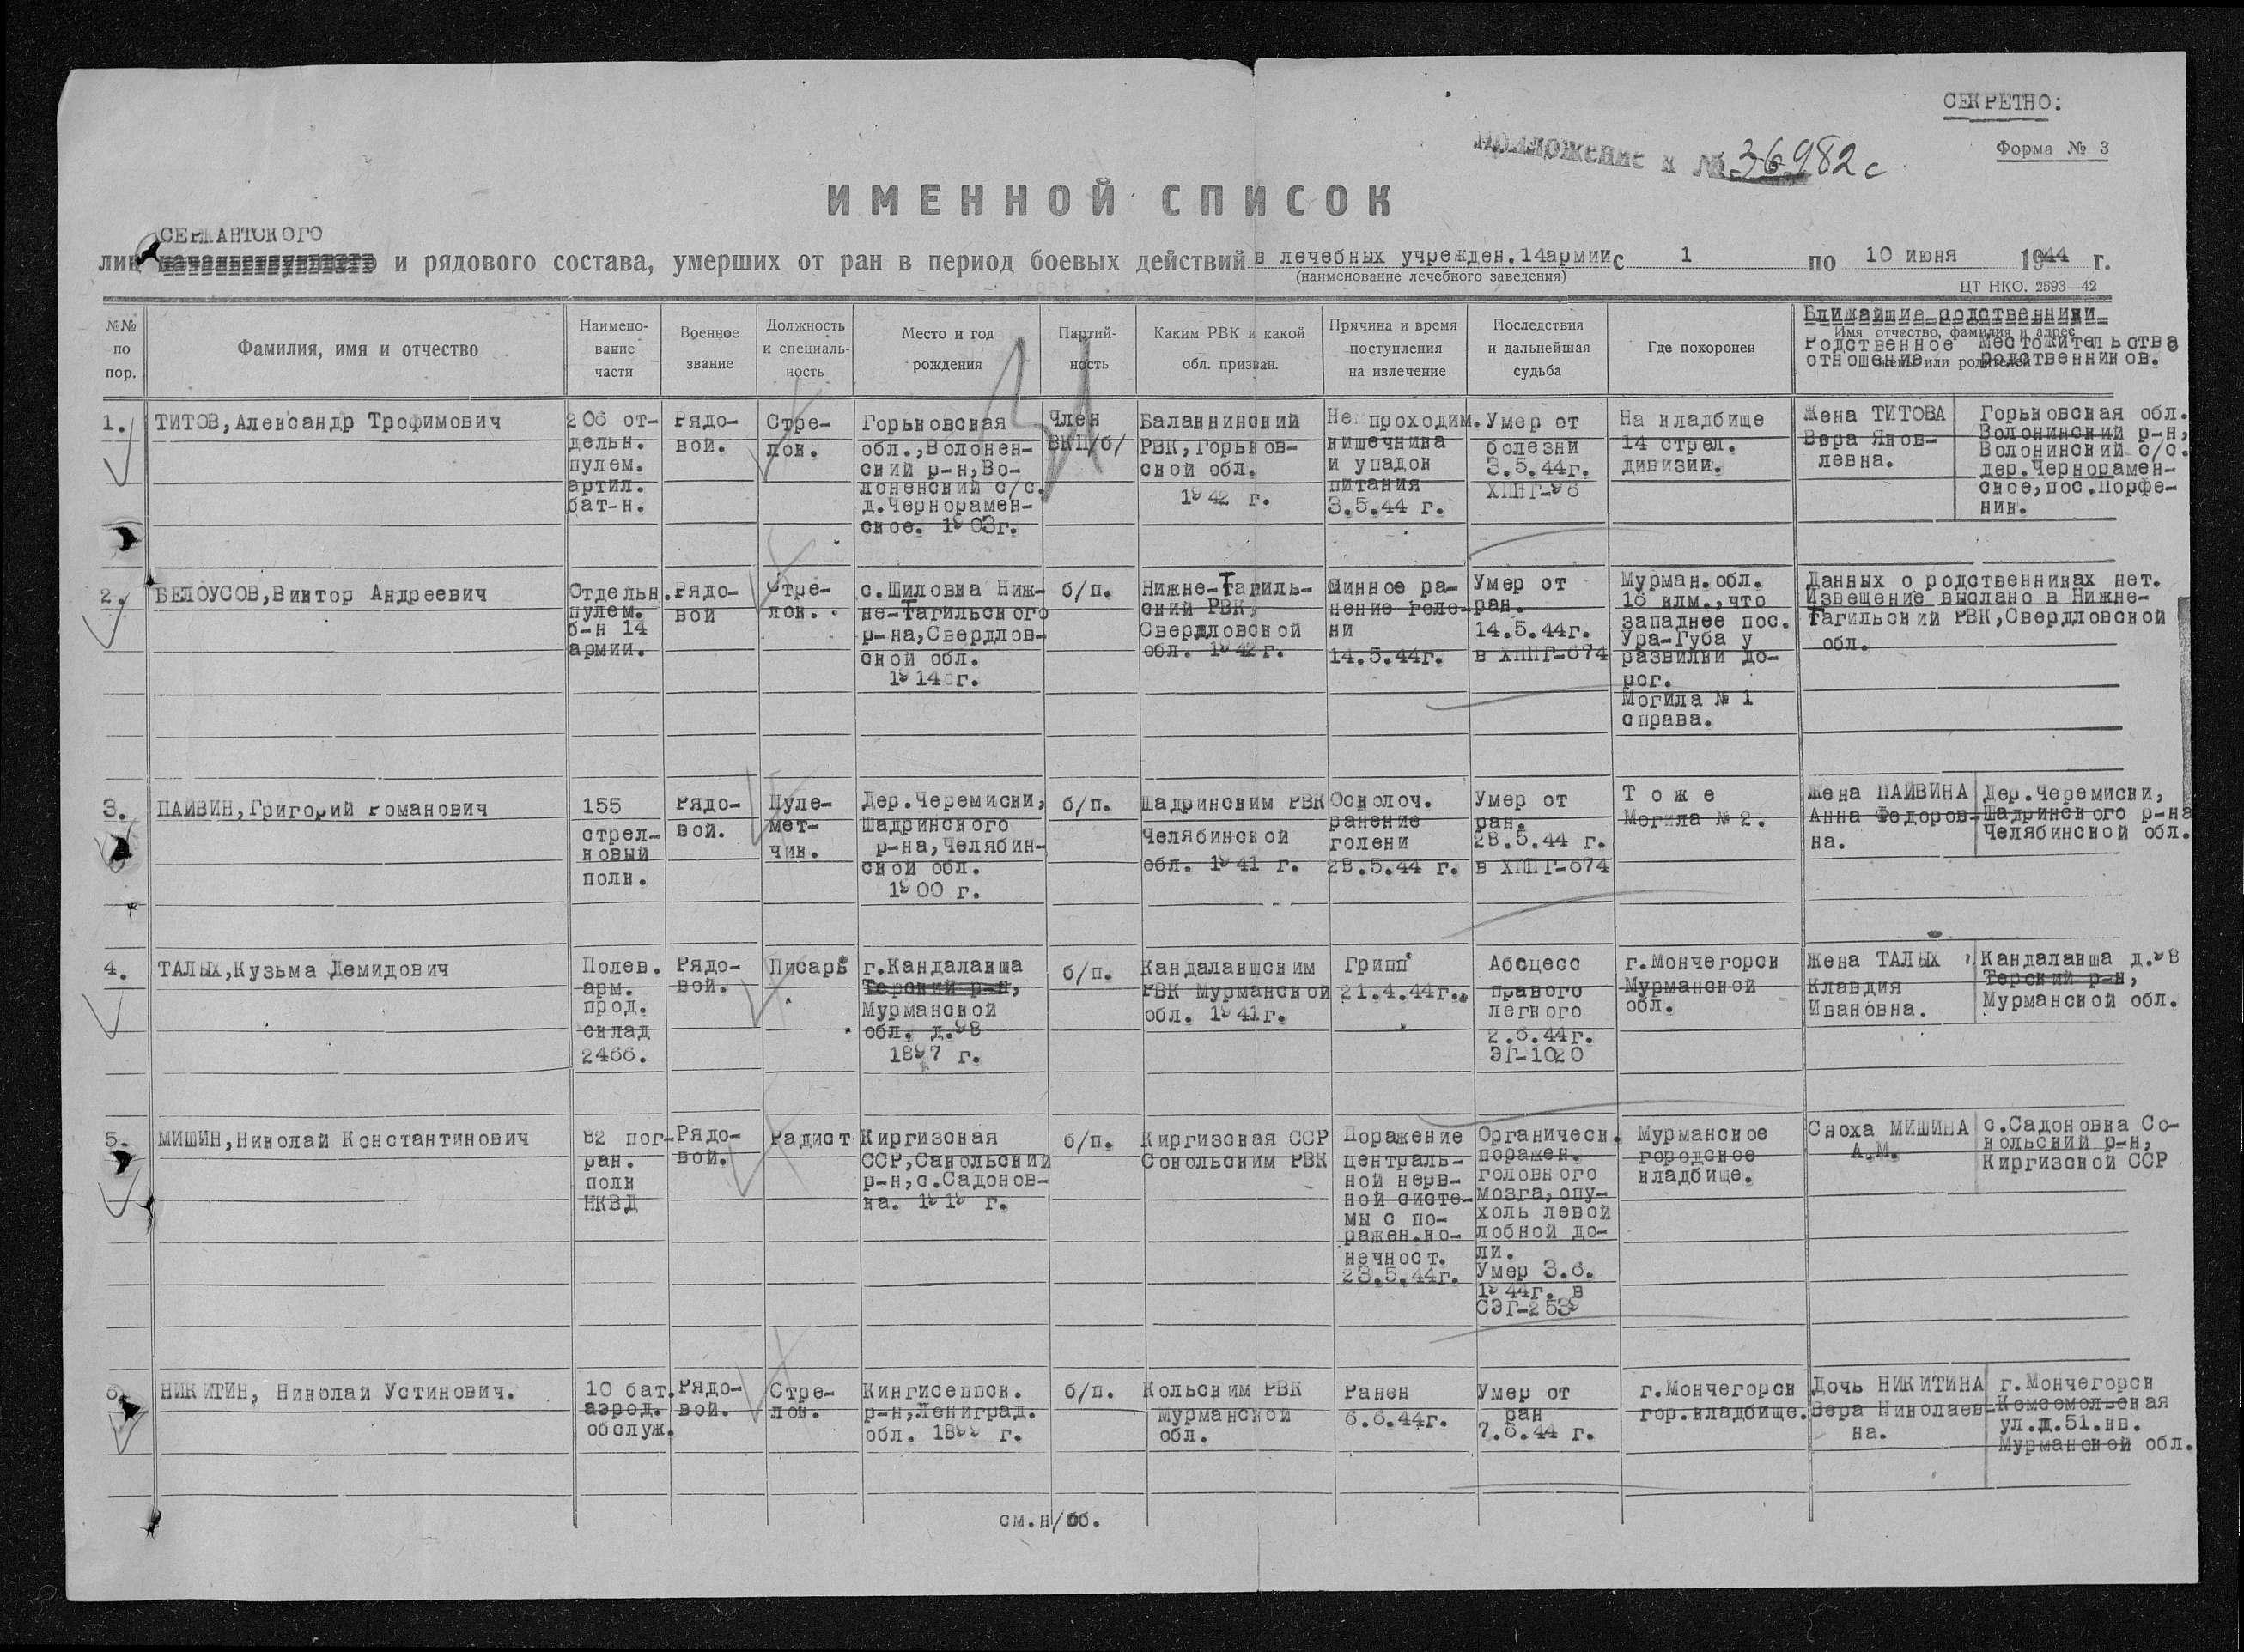 СЕКРЕТНО:
Форма № 3
Приложение к № 36982с
ИМЕННОЙ СПИСОК
СЕРЖАНТСКОГО
лиц начальствующего и рядового состава, умерших от ран в период боевых действий в лечебных учрежден.14армии с 1 по 10 июня 1944 г.
(наименование лечебного заведения)
ЦТ НКО. 2593—42
№№
по
пор.
Фамилия, имя и отчество
Наимено-
вание
части
Военное
звание
Должность
и специаль-
ность
Место и год
рождения
Партий-
ность
Каким РВК и какой
обл. призван.
Причина и время
поступления
на излечение
Последствия
и дальнейшая
судьба
Где похоронен
Ближайшие родственники
Имя отчество, фамилия и адрес
жены или родителей
Родственное
отношение
Местожительства
родственников.
1.
ТИТОВ,Александр Трофимович
206 от-
дельн.
пулем.
артил.
бат-н.
Рядо-
вой.
Стре-
лок.
Горьковская
обл.,Волонен-
ский р-н,Во-
лоненский с/с.
д.Чернорамен-
ское. 1903г.
Член
ВКП/б/
Балакнинский
РВК,Горьков-
ской обл.
1942 г.
Не проходим.
кишечника
и упадок
питания
3.5.44 г.
Умер от
болезни
3.5.44г.
ХППГ-96
На кладбище
14 стрел.
дивизии.
Жена ТИТОВА
Вера Яков-
левна.
Горьковская обл.
Волонинский р-н,
Волонинский с/с.
дер.Чернорамен-
ское,пос.Порфе-
нив.
2.
БЕЛОУСОВ,Виктор Андреевич
Отдельн.
пулем.
б-н 14
армии.
Рядо-
вой
Стре-
лок.
с.Шиловка Ниж-
не-Тагильского
р-на,Свердлов-
ской обл.
1914 г.
б/п.
Нижне-Тагиль-
ский РВК,
Свердловской
обл. 1942г.
Минное ра-
нение голе-
ни
14.5.44г.
Умер от
ран.
14.5.44г.
в ХППГ-674
Мурман.обл.
16 клм.,что
западнее пос.
Ура-Губа у
развилки до-
рог.
Могила № 1
справа.
Данных о родственниках нет.
Извещение выслано в Нижне-
Тагильский РВК,Свердловской
обл.
3.
ПАЙВИН,Григорий Романович
155
стрел-
ковый
полк.
Рядо-
вой.
Пуле-
мет-
чик.
Дер.Черемиски,
Шадринского
р-на,Челябин-
ской обл.
1900 г.
б/п.
Шадринским РВК
Челябинской
обл. 1941 г.
Осколоч.
ранение
голени
28.5.44 г.
Умер от
ран.
28.5.44 г.
в ХППГ-674
Тоже
Могила № 2.
Жена ПАЙВИНА
Анна Федоров-
на.
Дер.Черемиски,
Шадринского р-на
Челябинской обл.
4.
ТАЛЫХ,Кузьма Демидович
Полев.
арм.
прод.
склад
2466.
Рядо-
вой.
Писарь
г.Кандалакша
Терский р-н,
Мурманской
обл. д.98
1897 г.
б/п.
Кандалакшским
РВК Мурманской
обл. 1941г.
Грипп
21.4.44г.
Абсцесс
правого
легкого
2.6.44г.
ЭГ-1020
г.Мончегорск
Мурманской
обл.
Жена ТАЛЫХ
Клавдия
Ивановна.
Кандалакша д.98
Терский р-н,
Мурманской обл.
5.
МИШИН,Николай Константинович
82 пог-
ран.
полк
НКВД
Рядо-
вой.
Радист
Киргизская
ССР,Сакольский
р-н,с.Садонов-
ка. 1919 г.
б/п.
Киргизская ССР
Сокольским РВК
Поражение
централь-
ной нерв-
ной систе-
мы с по-
ражен.ко-
нечност.
23.5.44г.
Органическ.
поражен.
головного
мозга,опу-
холь левой
лобной до-
ли.
Умер 3.6.
1944г. в
СЭГ-2539
Мурманское
городское
кладбище.
Сноха МИШИНА
А.М.
с.Садоновка Со-
кольский р-н,
Киргизской ССР
6.
НИКИТИН, Николай Устинович.
10 бат.
аэрод.
обслуж.
Рядо-
вой.
Стре-
лок.
Кингисеппск.
р-н,Лениград.
обл. 1899 г.
б/п.
Кольским РВК
Мурманской
обл.
Ранен
6.6.44г.
Умер от
ран
7.6.44 г.
г.Мончегорск
гор.кладбище.
Дочь НИКИТИНА
Вера Николаев-
на.
г.Мончегорск
Комсомольская
ул.д.51.кв.
Мурманской обл.
см.н/об.